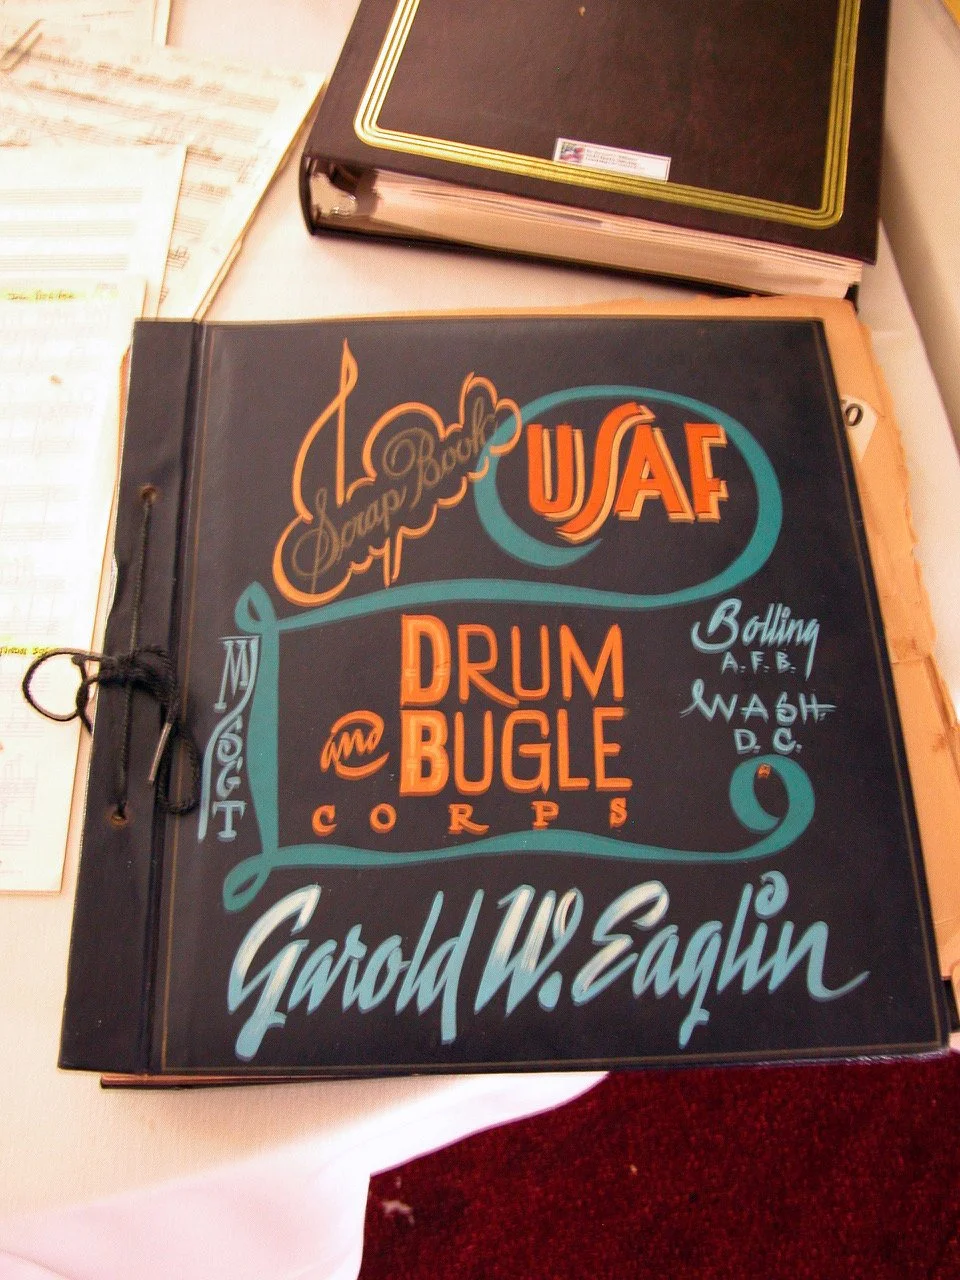 Scrap Book
USAF
DRUM
and BUGLE
CORPS
M/SGT
Bolling
A.F.B.
WASH
D.C.
Garold W. Eaglin